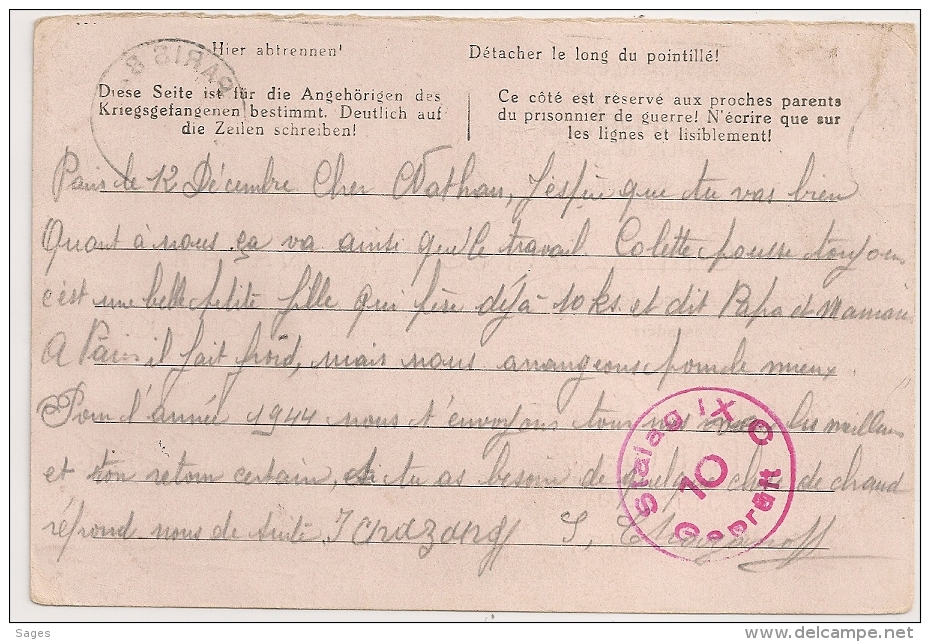 PARIS 8
Hier abtrennen!
Détacher le long du pointillé!
Diese Seite ist für die Angehörigen des
Kriegsgefangenen bestimmt. Deutlich auf
die Zeilen schreiben!
Ce côté est réservé aux proches parents
du prisonnier de guerre! N'écrire que sur
les lignes et lisiblement!
Paris le 12 Décembre Cher Nathan, J'espère que tu vas bien
Quant à nous ça va ainsi que le travail Colette pousse toujours
c'est une belle petite fille qui pèse déjà 10 ks. et dit Papa et Maman
A Paris il fait froid, mais nous arrangeons pour le mieux
Pour l'année 1944 nous t'envoyons tous nos les meilleurs
et ton retour certain, si tu as besoin de quelque chose de chaud
répond nous de suite
Stalag IX C
10
Geprüft
Sages
http://www.delcampe.net